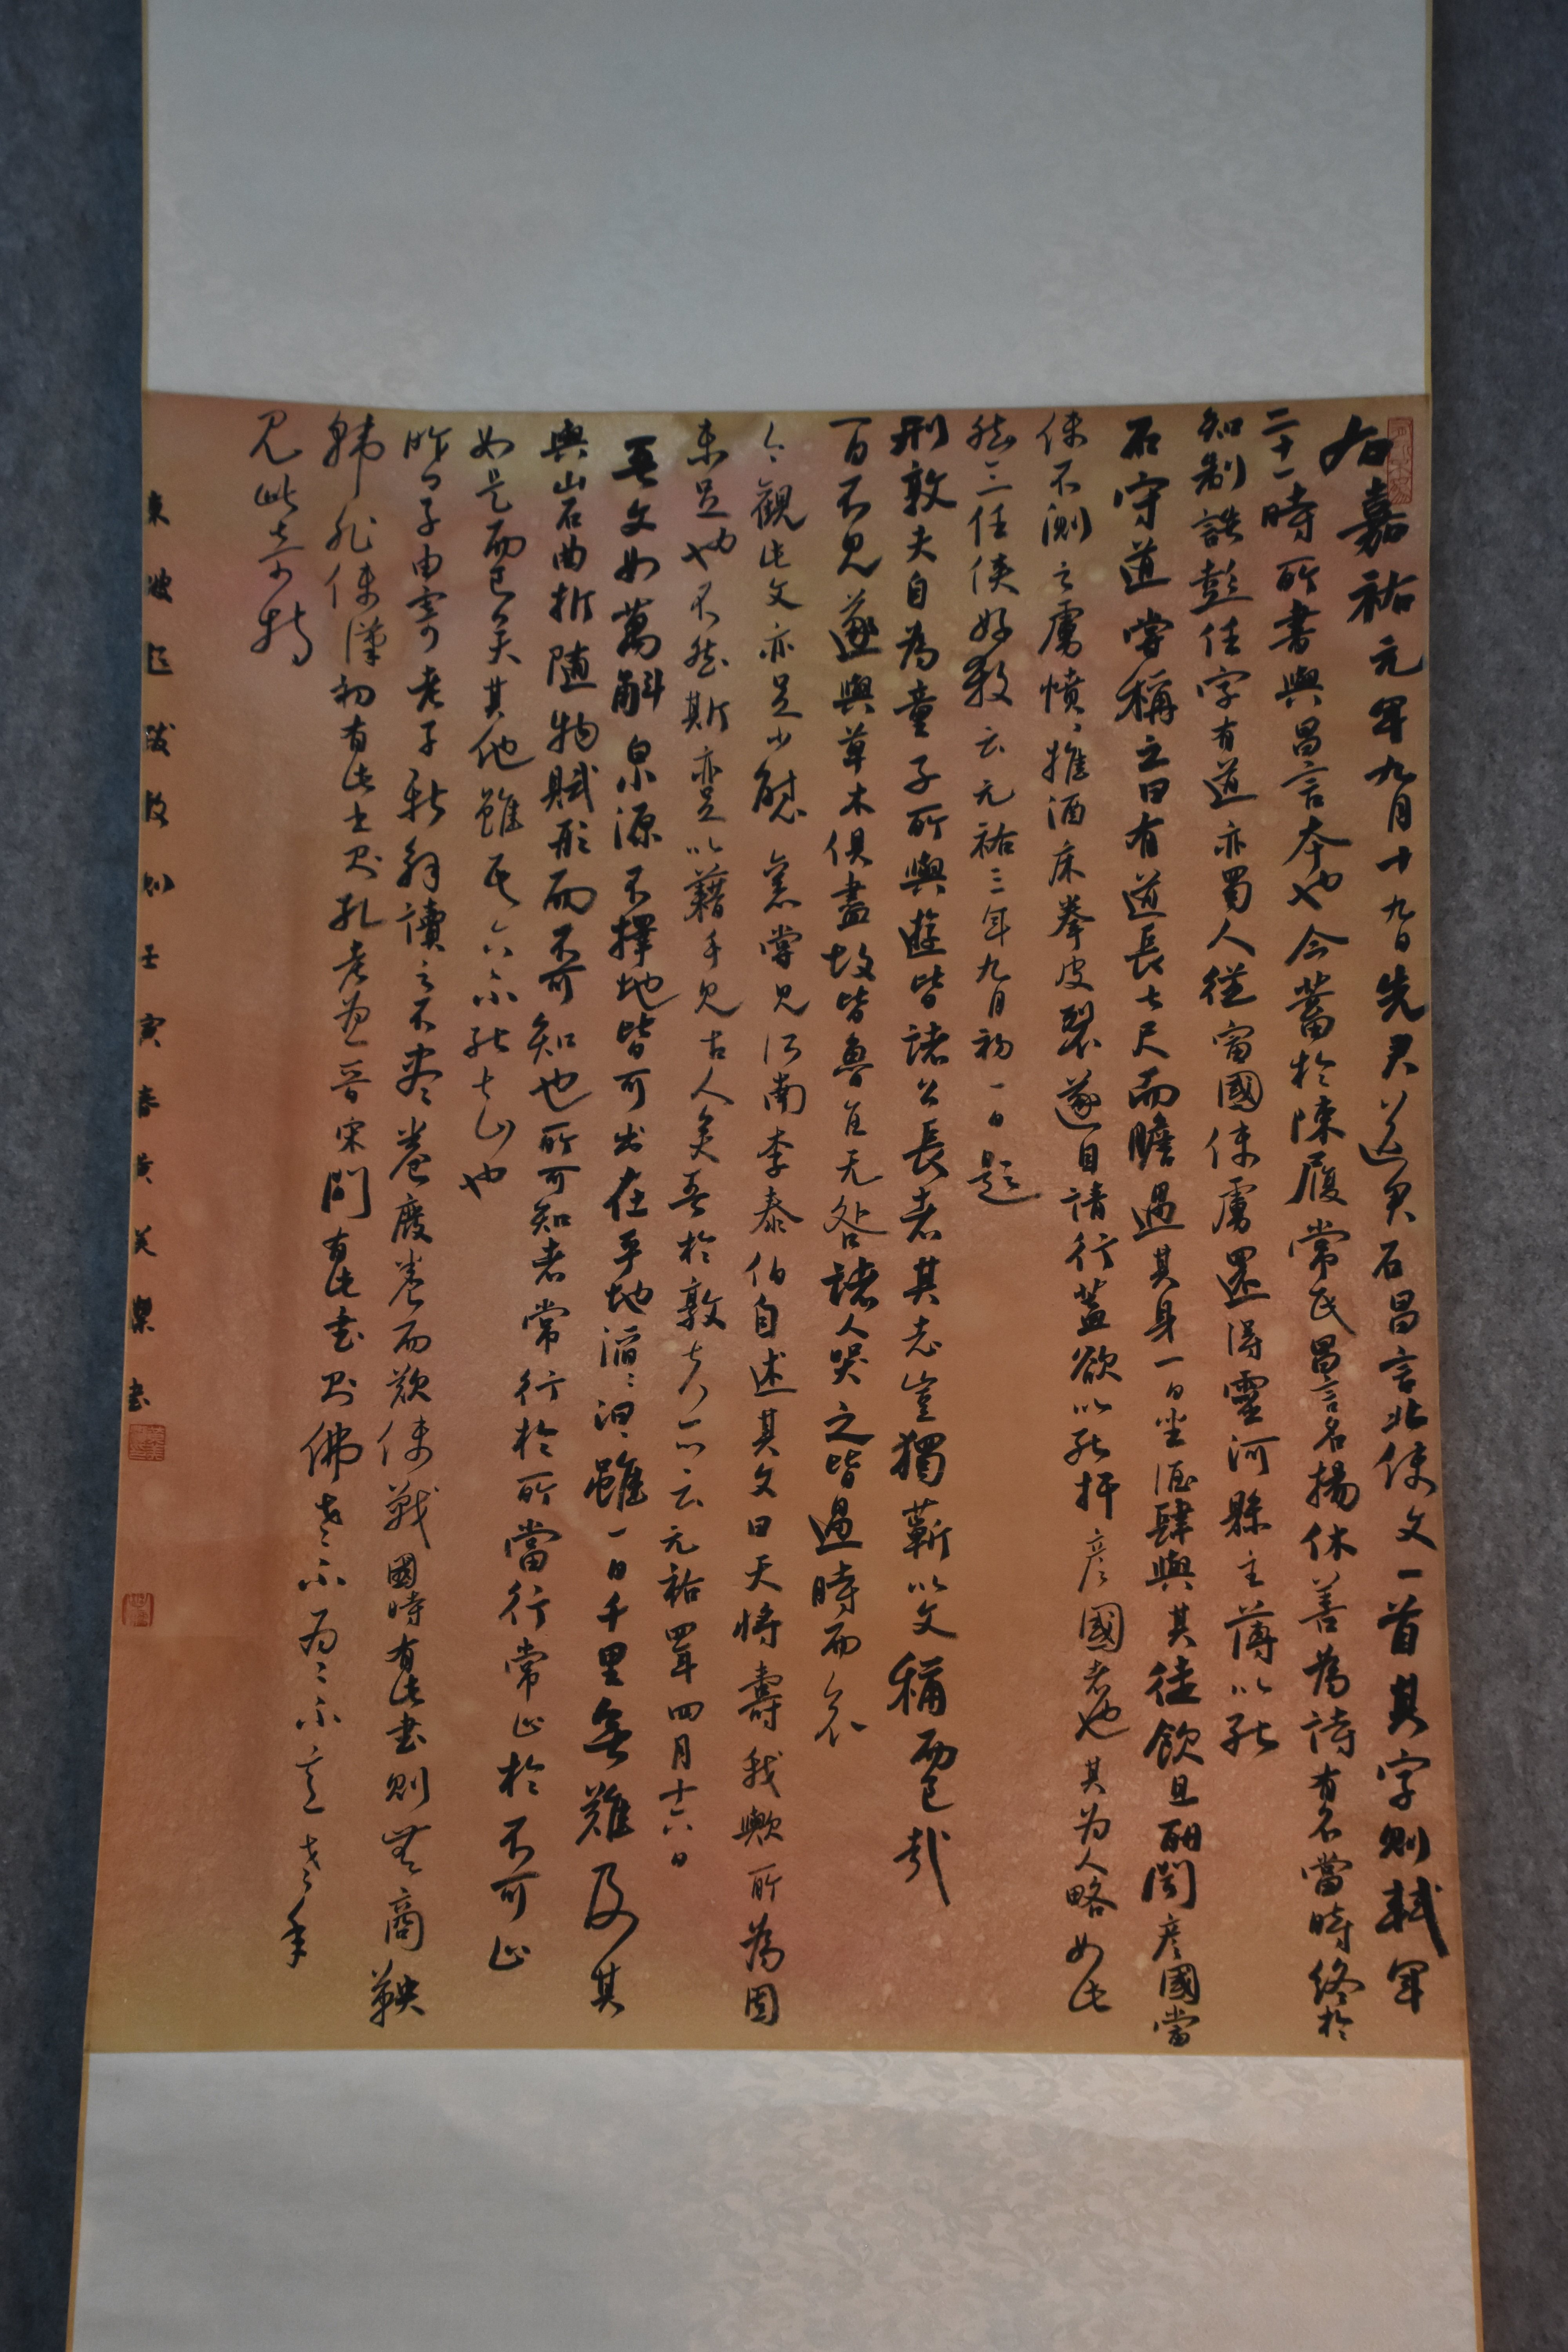 右嘉祐元年九月十九日先君送石昌言北使文一首其字則軾年
二十一時所書與昌言本也今蓄於陳履常氏昌言名揚休善為詩有名當時終於
知制誥彭任字有道亦蜀人從富國使虜還得靈河縣主薄以死
石守道嘗稱之曰有道長七尺而膽過其身一日坐酒肆與其徒飲且酣聞彥國當
使不測之虜憤憤推酒床拳皮裂遂自請行蓋欲以死扞彥國者也其为人略如此
然亡任俠好殺云元祐三年九月初一日題
刑敦夫自為童子所與遊皆諸公長者其志豈獨蘄以文稱而已哉
百不見遂與草木俱盡故皆魯直无咎諸人哭之皆過時而哀
今觀此文亦足少慰舊嘗見江南李泰伯自述其文曰天將壽我歟所為固
未足也不然斯亦足以藉手見古人矣吾於敦夫亦云元祐四年四月十六日
吾文如萬斛泉源不擇地皆可出在平地滔滔汩汩雖一日千里無難及其
與山石曲折隨物賦形而不可知也所可知者常行於所當行常止於不可止
如是而已矣其他雖吾亦不能知也
昨日子由寄老子新解讀之不盡卷廢卷而歎使戰國時有此書則無商鞅
韓非使漢初有此書則孔老为一晉宋間有此書則佛老不为二不意老年
見此奇特
東坡題跋數則壬寅春黃 樂書